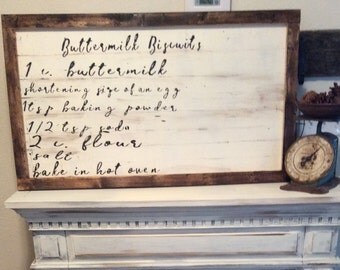 Buttermilk Biscuits
1 c. buttermilk
shortening size of an egg
1tsp baking powder
1/2 tsp soda
2 c. flour
salt
bake in hot oven